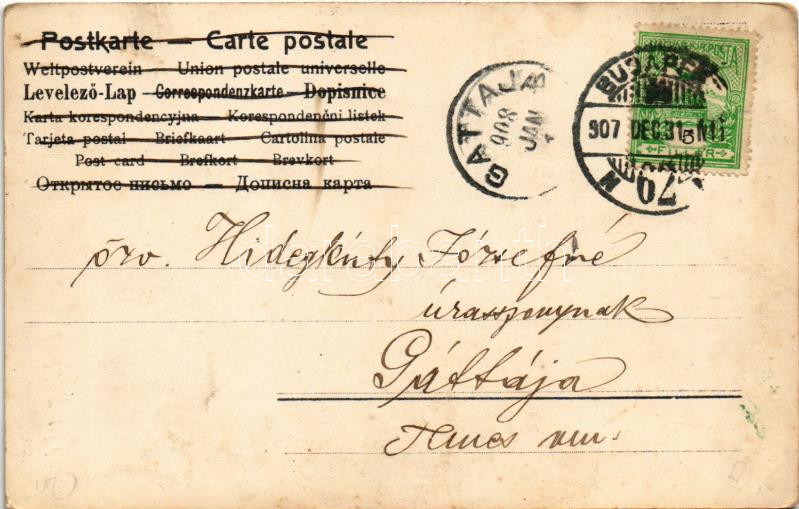 Postkarte — Carte postale
Weltpostverein — Union postale universelle
Levelező-Lap — Correspondenzkarte — Dopisnice
Karta korespondencyjna — Korespondenční listek
Tarjeta postal — Briefkaart — Cartolina postale
Post card — Brefkort — Brevkort
Открытое письмо — Дописна карта
GATTAJA
908
JAN
BUDAPEST
907 DEC 31
70
POSTA
5
FILLÉR
darabanth
özv. Hidegkúty Józsefné
úrasszonynak
Gáttája
Temes vm.